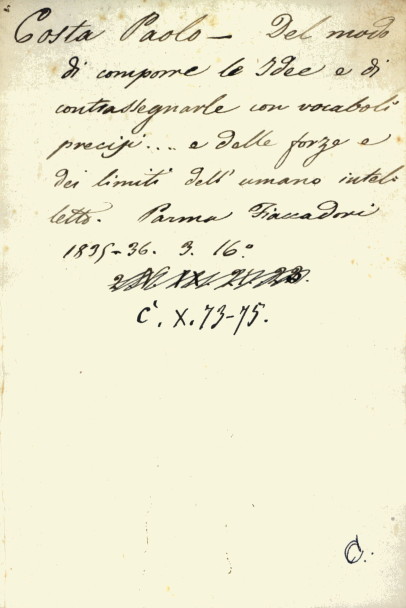 Costa Paolo - Del modo
di comporre le Idee e di
contrassegnarle con vocaboli
precisi.... e delle forze e
dei limiti dell' umano intel-
letto. Parma Fiaccadori
1835-36. 3. 16.º
C. X. 73-75.
C.